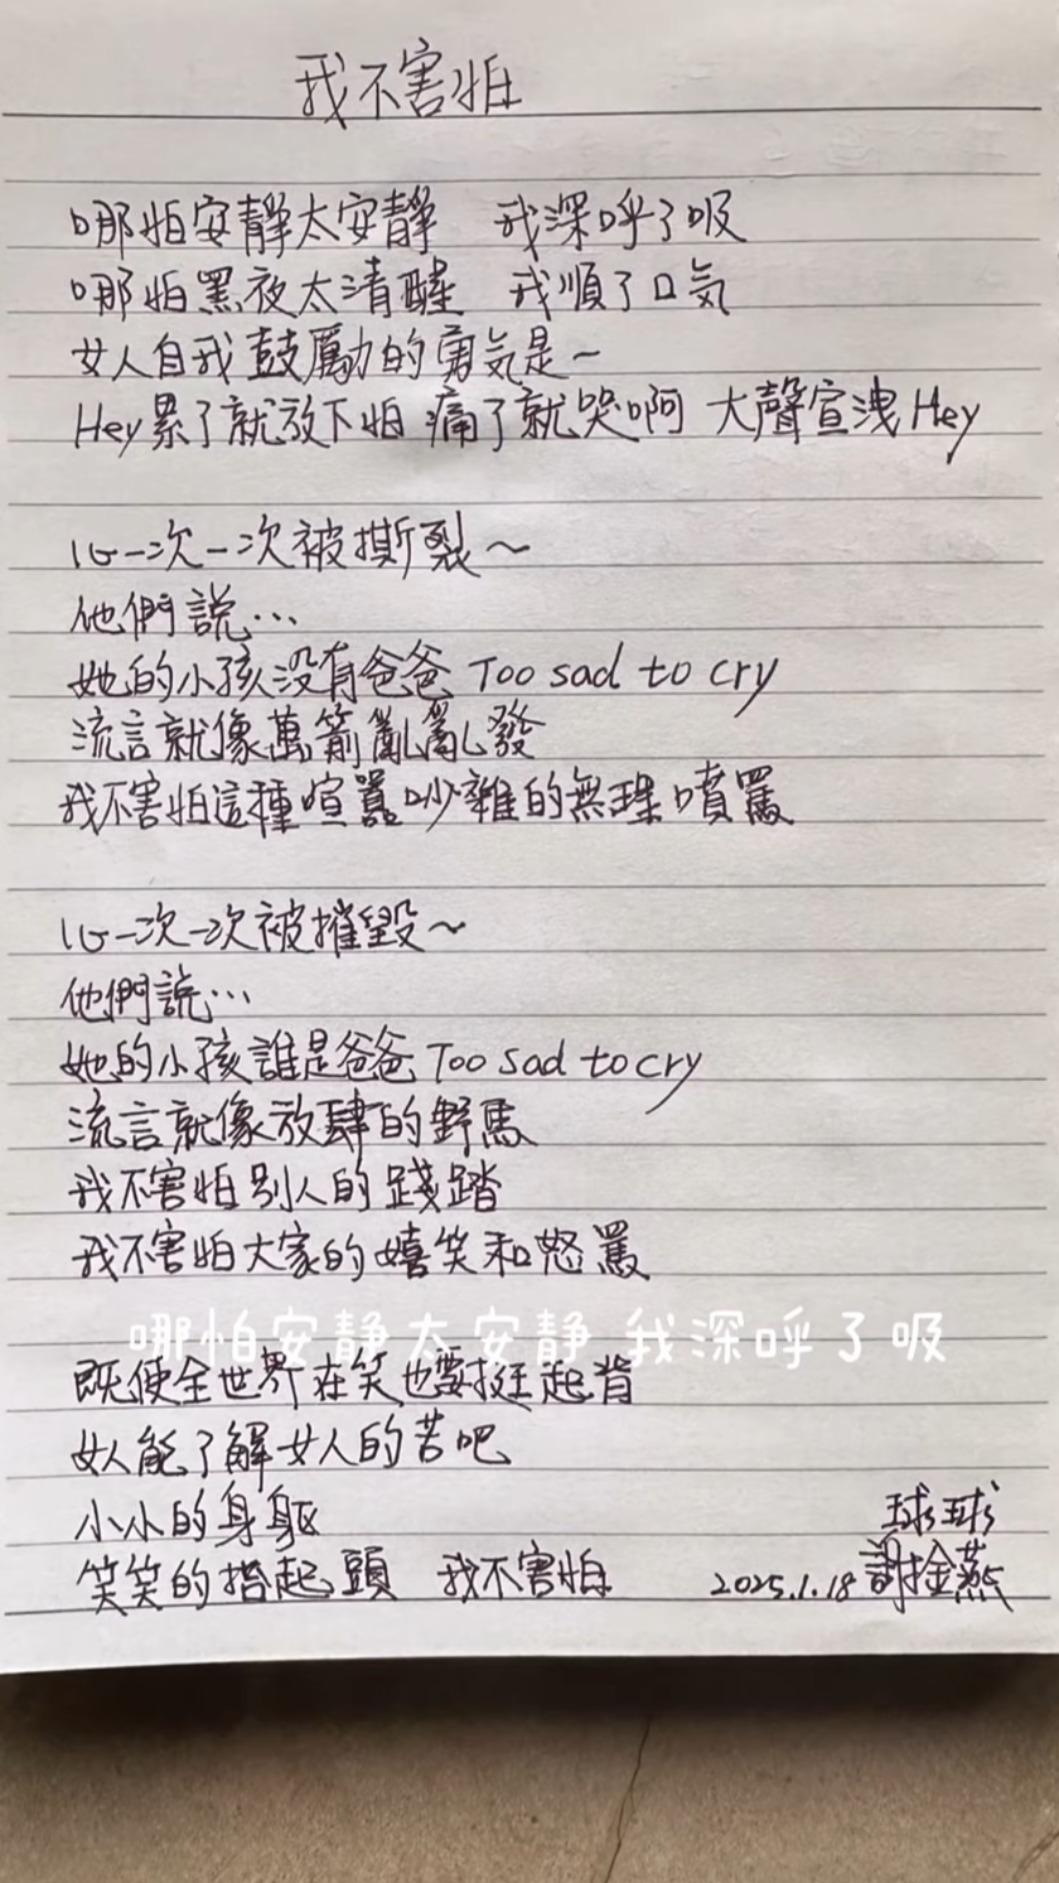 我不害怕
哪怕安靜太安靜 我深呼了吸
哪怕黑夜太清醒 我順了口氣
女人自我鼓勵的勇氣是~
Hey累了就放下怕 痛了就哭啊 大聲宣洩Hey
心一次一次被撕裂~
他們說…
她的小孩没有爸爸 Too sad to cry
流言就像萬箭亂亂發
我不害怕這種喧囂吵雜的無理噴罵
心一次一次被摧毀~
他們說…
她的小孩誰是爸爸 Too sad to cry
流言就像放肆的野馬
我不害怕别人的踐踏
我不害怕大家的嬉笑和怒罵
哪怕安静太安静 我深呼了吸
既使全世界在笑也要挺起背
女人能了解女人的苦吧
小小的身軀
球球
笑笑的抬起頭 我不害怕 2025.1.18 謝金燕